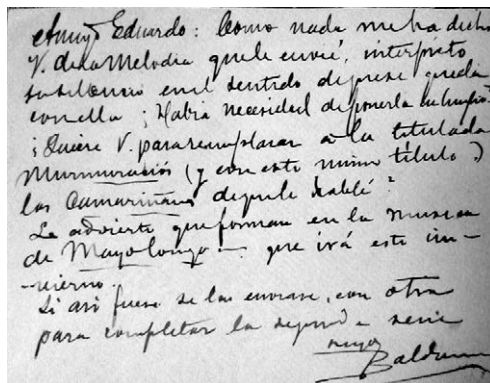 Amigo Eduardo: Como nada me ha dicho
V. de la Melodia que le envié, interpreto
su silencio en el sentido de que se queda
con ella; Habrá necesidad de ponerla en limpio?
¿Quiere V. para reemplazar a la titulada
Murmuración (y con este mismo título?)
las Camariñas de que le hablé?
Le advierto que forman en la musica
de Mayolongo — que irá este in-
-vierno.
Si asi fuese se las enviase, con otra
para completar la segunda serie
suyo
Baldomir